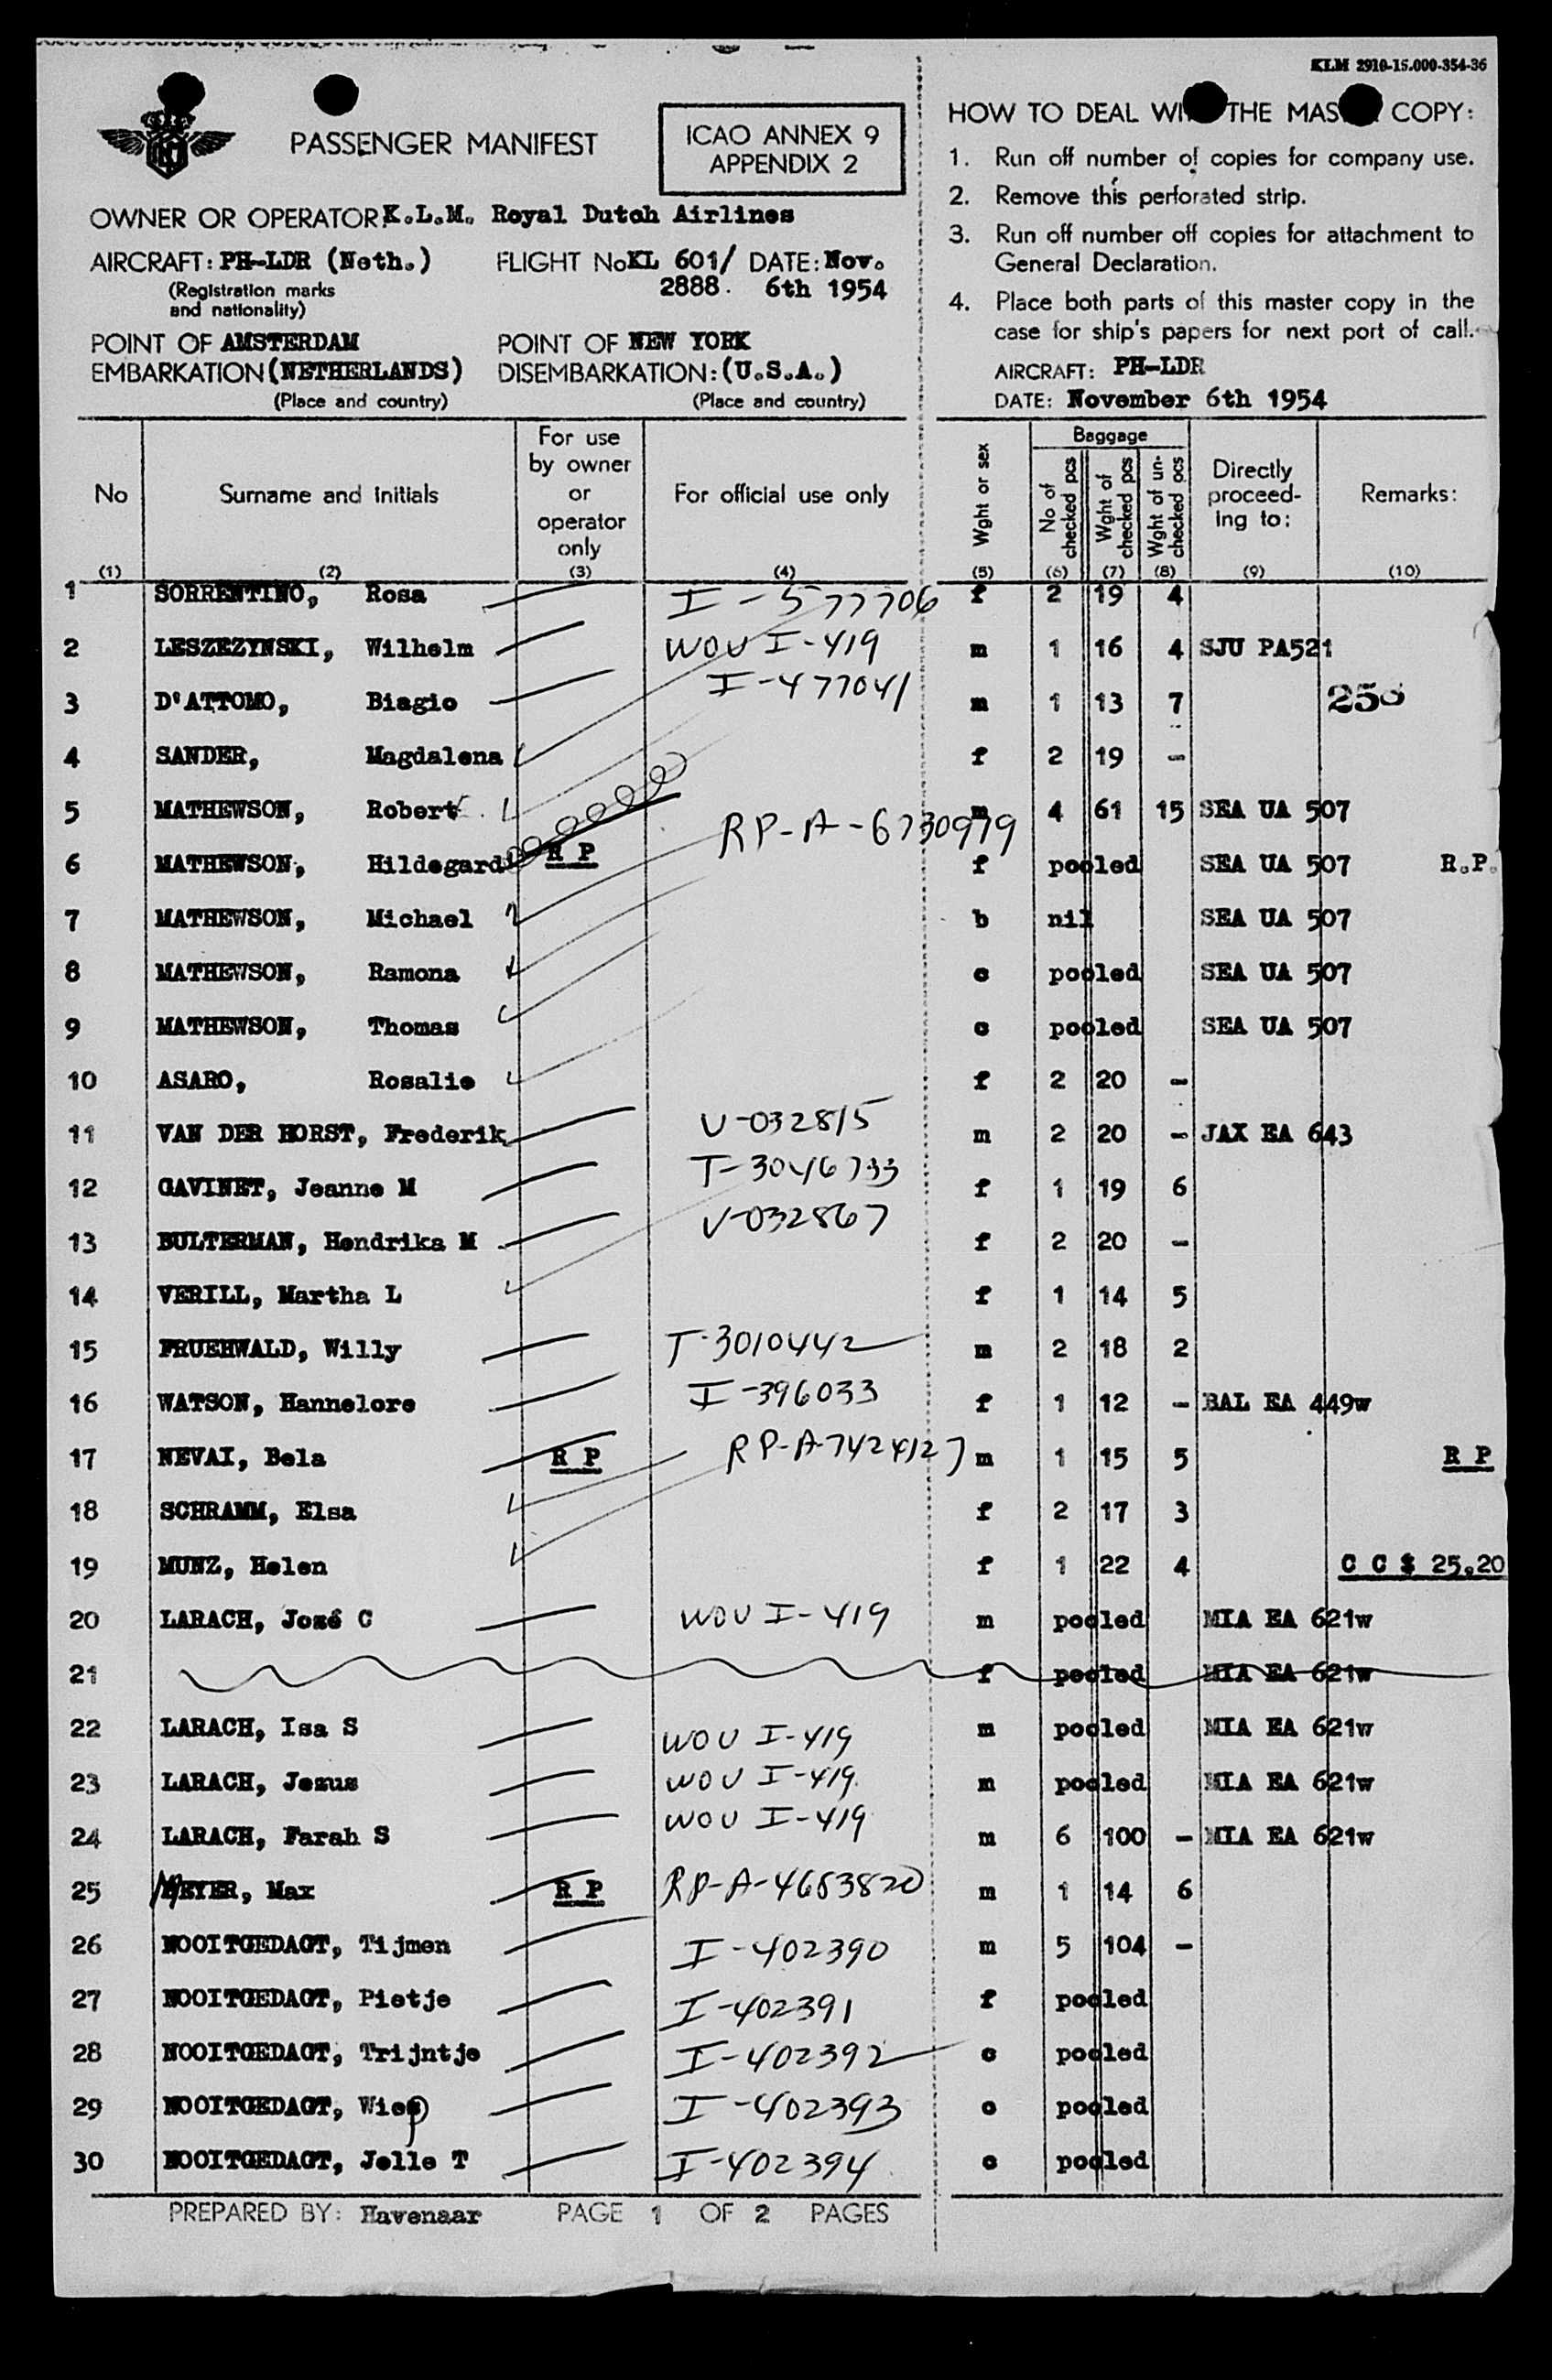 KLM 2910-15.000-354-36
PASSENGER MANIFEST
ICAO ANNEX 9
APPENDIX 2
OWNER OR OPERATOR: K.L.M. Royal Dutch Airlines
AIRCRAFT: PH-LDR (Neth.) FLIGHT No KL 601/ DATE: Nov.
(Registration marks 2888. 6th 1954
and nationality)
POINT OF AMSTERDAM POINT OF NEW YORK
EMBARKATION (NETHERLANDS) DISEMBARKATION: (U.S.A.)
(Place and country) (Place and country)
HOW TO DEAL THE COPY:
1. Run off number of copies for company use.
2. Remove this perforated strip.
3. Run off number off copies for attachment to
General Declaration.
4. Place both parts of this master copy in the
case for ship's papers for next port of call.
AIRCRAFT: PH-LDR
DATE: November 6th 1954
No
Surname and initials
For use
by owner
or
operator
only
For official use only
Wght or sex
Baggage
No of
checked pcs
Wght of
checked pcs
Wght of un-
checked pcs
Directly
proceed-
ing to:
Remarks:
(1) (2) (3) (4) (5) (6) (7) (8) (9) (10)
1 SORRENTINO, Rosa I-577706 f 2 19 4
2 LESZEZYNSKI, Wilhelm WOV I-419 m 1 16 4 SJU PA521
3 D'ATTOMO, Biagio I-477041 m 1 13 7
4 SANDER, Magdalena f 2 19 -
5 MATHEWSON, Robert m 4 61 15 SEA UA 507
6 MATHEWSON, Hildegard R P RP-A-6730979 f pooled SEA UA 507 R.P.
7 MATHEWSON, Michael b nil SEA UA 507
8 MATHEWSON, Ramona c pooled SEA UA 507
9 MATHEWSON, Thomas c pooled SEA UA 507
10 ASARO, Rosalie f 2 20 -
11 VAN DER HORST, Frederik V-032815 m 2 20 - JAX EA 643
12 GAVINET, Jeanne M T-3046733 f 1 19 6
13 BULTERMAN, Hendrika M V-032867 f 2 20 -
14 VERILL, Martha L f 1 14 5
15 FRUEHWALD, Willy T-3010442 m 2 18 2
16 WATSON, Hannelore I-396033 f 1 12 - BAL EA 449w
17 NEVAI, Bela R P RP-A-7424127 m 1 15 5 R P
18 SCHRAMM, Elsa f 2 17 3
19 MUNZ, Helen f 1 22 4 C C $ 25,20
20 LARACH, José C WOV I-419 m pooled MIA EA 621w
21 f pooled MIA EA 621w
22 LARACH, Isa S WOV I-419 m pooled MIA EA 621w
23 LARACH, Jezus WOV I-419 m pooled MIA EA 621w
24 LARACH, Farah S WOV I-419 m 6 100 - MIA EA 621w
25 MEYER, Max R P RP-A-4683820 m 1 14 6
26 NOOITGEDAGT, Tijmen I-402390 m 5 104 -
27 NOOITGEDAGT, Pietje I-402391 f pooled
28 NOOITGEDAGT, Trijntje I-402392 c pooled
29 NOOITGEDAGT, I-402393 c pooled
30 NOOITGEDAGT, Jelle T I-402394 c pooled
PREPARED BY: Havenaar PAGE 1 OF 2 PAGES